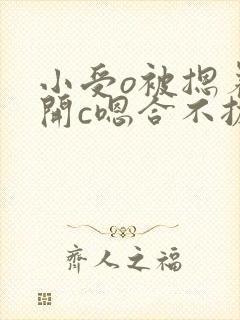 小受o被摁着
開c嗯合不拢
齊人之福